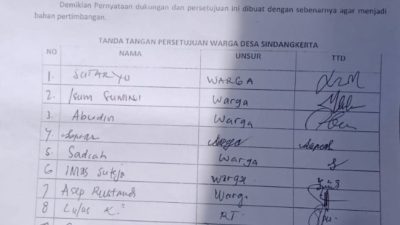 Demikian Pernyataan dukungan dan persetujuan ini dibuat dengan sebenarnya agar menjadi
bahan pertimbangan.
TANDA TANGAN PERSETUJUAN WARGA DESA SINDANGKERTA
NO NAMA UNSUR TTD
1. SUTARYO WARGA
2. Isum Sumini Warga
3. Abudin Warga
4. Warga
5. Sadiah Warga
6 Imas warga
7 Asep Rustandi Warga
8 Lulus K. RT